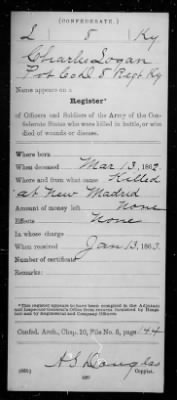 (CONFEDERATE.)
L 5 Ky
Charles Logan
Pvt Co D. 5 Regt Ky
Name appears on a
Register*
of Officers and Soldiers of the Army of the Confederate States who were killed in battle, or who
died of wounds or disease.
Where born
When deceased Mar 13, 1862.
Where and from what cause Killed
at New Madrid
Amount of money left None
Effects None
In whose charge
When received Jan 13, 1863.
Number of certificate
Remarks:
*This register appears to have been compiled in the Adjutant
and Inspector General's Office from returns furnished by
and by Regimental and Company Officers
Confed. Arch., Chap. 10, File No. 8, page 144
A S Douglas
Copyist.